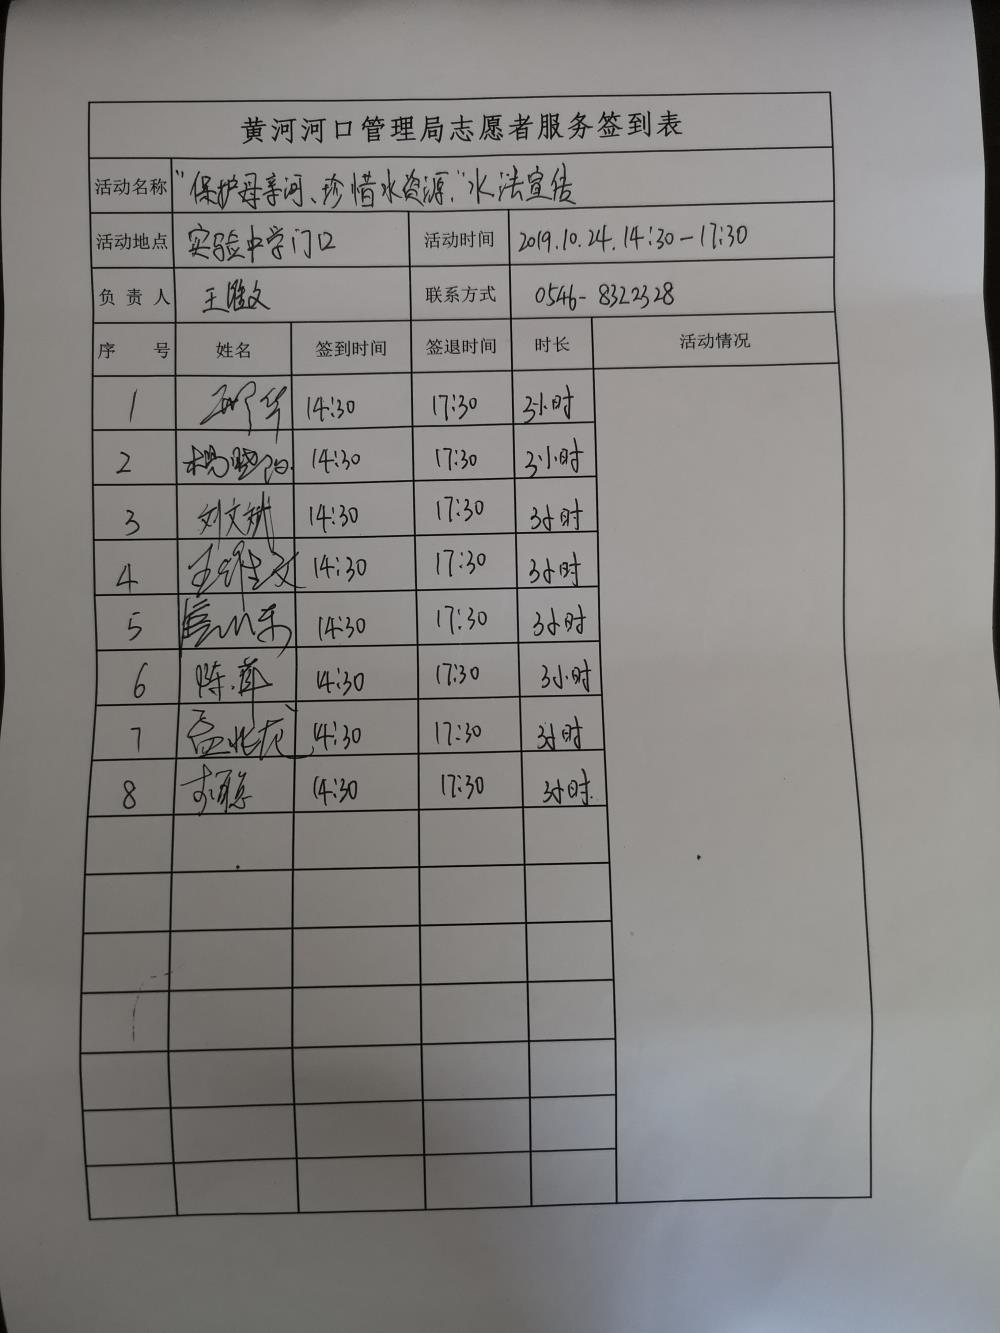 黄河河口管理局志愿者服务签到表
活动名称 "保护母亲河、珍惜水资源."水法宣传
活动地点 实验中学门口 活动时间 2019.10.24.14:30-17:30
负责人 王维文 联系方式 0546-8322328
序号 姓名 签到时间 签退时间 时长 活动情况
1 14:30 17:30 3小时
2 杨晓阳 14:30 17:30 3小时
3 刘文斌 14:30 17:30 3小时
4 王维文 14:30 17:30 3小时
5 14:30 17:30 3小时
6 陈菲 14:30 17:30 3小时
7 14:30 17:30 3小时
8 14:30 17:30 3小时.